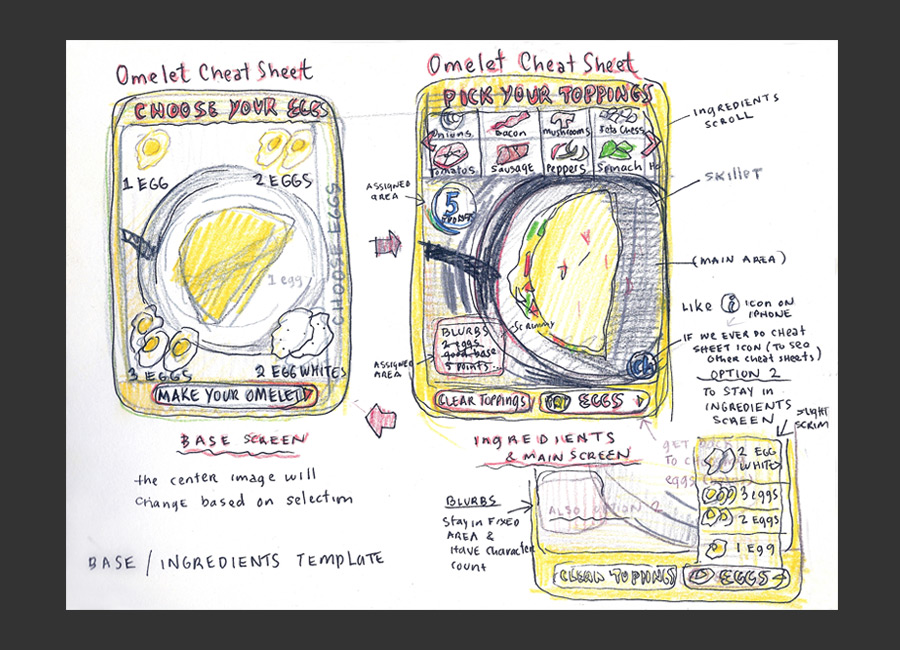 Omelet Cheat Sheet
CHOOSE YOUR EGGS
1 EGG
2 EGGS
CHOOSE EGGS
1 egg
3 EGGS
2 EGG WHITES
MAKE YOUR OMELET
BASE SCREEN
the center image will
change based on selection
BASE / INGREDIENTS TEMPLATE
Omelet Cheat Sheet
PICK YOUR TOPPINGS
Onions
Bacon
Mushrooms
Feta Chees
Tomatos
Sausage
Peppers
Spinach
INGREDIENTS
SCROLL
SKILLET
ASSIGNED
AREA
5
POINTS
(MAIN AREA)
LIKE i ICON ON
IPHONE
IF WE EVER DO CHEAT
SHEET ICON (TO SEO
OTHER CHEAT SHEETS)
BLURBS
2 eggs
good base
5 points...
Scrummy
ASSIGNED
AREA
Ch
CLEAR TOPPINGS
EGGS
INGREDIENTS
& MAIN SCREEN
OPTION 2
TO STAY IN
INGREDIENTS
SCREEN
SLIGHT
SCRIM
GET BACK
TO
eggs
BLURBS
Stay in FIXED
AREA &
Have Character
count
ALSO OPTION 2
2 EGG
WHITES
3 eggs
2 eggs
1 Egg
CLEAR TOPPINGS
EGGS